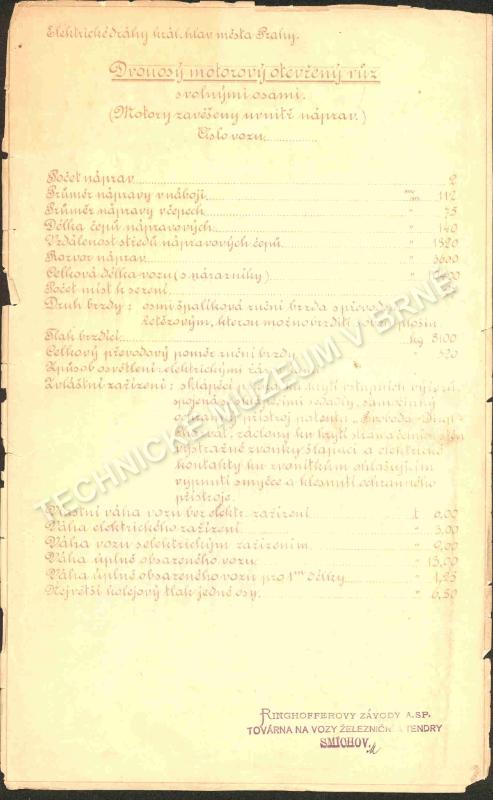 Elektrické dráhy král. hlav. města Prahy.
Dvouosý motorový otevřený vůz
s volnými osami.
(Motory zavěšeny uvnitř náprav.)
Číslo vozu:
Počet náprav 2
Průměr nápravy v náboji mm 112
Průměr nápravy v čepech " 75
Délka čepů nápravových " 140
Vzdálenost středů nápravových čepů " 1820
Rozvor náprav " 3600
Celková délka vozu (s nárazníky) "
Počet míst k sezení
Druh brzdy: osmišpalíková ruční brzda s převodem
řetězovým, kterou možno brzditi plošin.
Tlak brzdící kg 8100
Celkový převodový poměr ruční brzdy " 520
Způsob osvětlení: elektrickými
Zvláštní zařízení: sklápěcí ku krytí vstupních
spojená se sklápěcími sedadly, samočinný
ochranný přístroj patentu „Svoboda-
záclony ku krytí stran
výstražné zvonky šlapací a elektrické
kontakty ku zvonítkům ohlašujícím
vypnutí smyčce a klesnutí ochranného
přístroje.
Vlastní váha vozu bez elektr. zařízení t 6,00
Váha elektrického zařízení " 3,00
Váha vozu s elektrickým zařízením " 9,00
Váha úplně obsazeného vozu " 13,00
Váha úplně obsazeného vozu pro 1m délky " 1,25
Největší kolejový tlak jedné osy " 6,50
RINGHOFFEROVY ZÁVODY A. SP.
TOVÁRNA NA VOZY ŽELEZNIČNÍ A TENDRY
SMÍCHOV.
TECHNICKÉ MUZEUM V BRNĚ